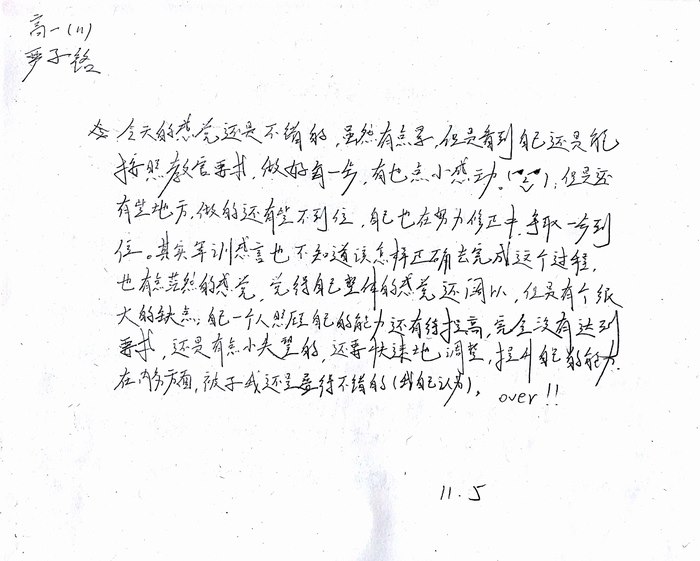 高一(11)
罗子铭
今天的感觉还是不错的,虽然有点累,但是看到自己还是能
按照教官要求,做好每一步,有也点小感动。( );但是还
有些地方,做的还有些不到位,自己也在努力修正中,争取一步到
位。其实军训感言也不知道该怎样正确去完成这个过程,
也有点茫然的感觉,觉得自己整体的感觉还阔以,但是有个很
大的缺点:自己一个人照顾自己的能力还有待提高,完全没有达到
要求,还是有点小失望的,还要快速地调整,提升自己的能力.
在内务方面,被子我还是叠得不错的(我自己认为)。 over!!
11.5